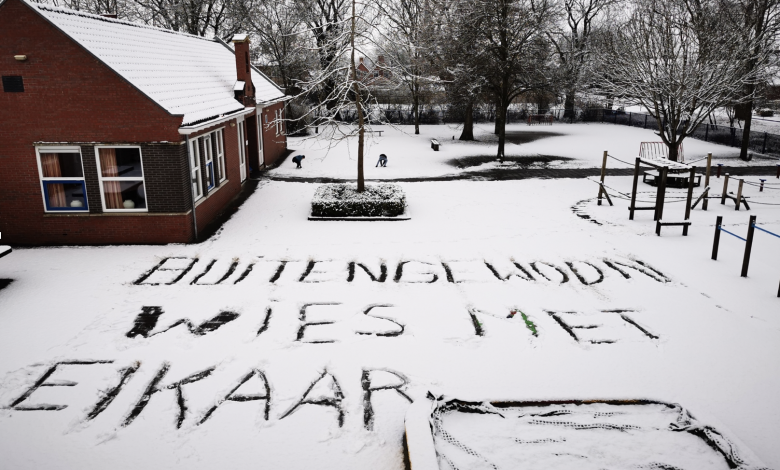 BUITENGEWOON
WIES MET
EIKAAR